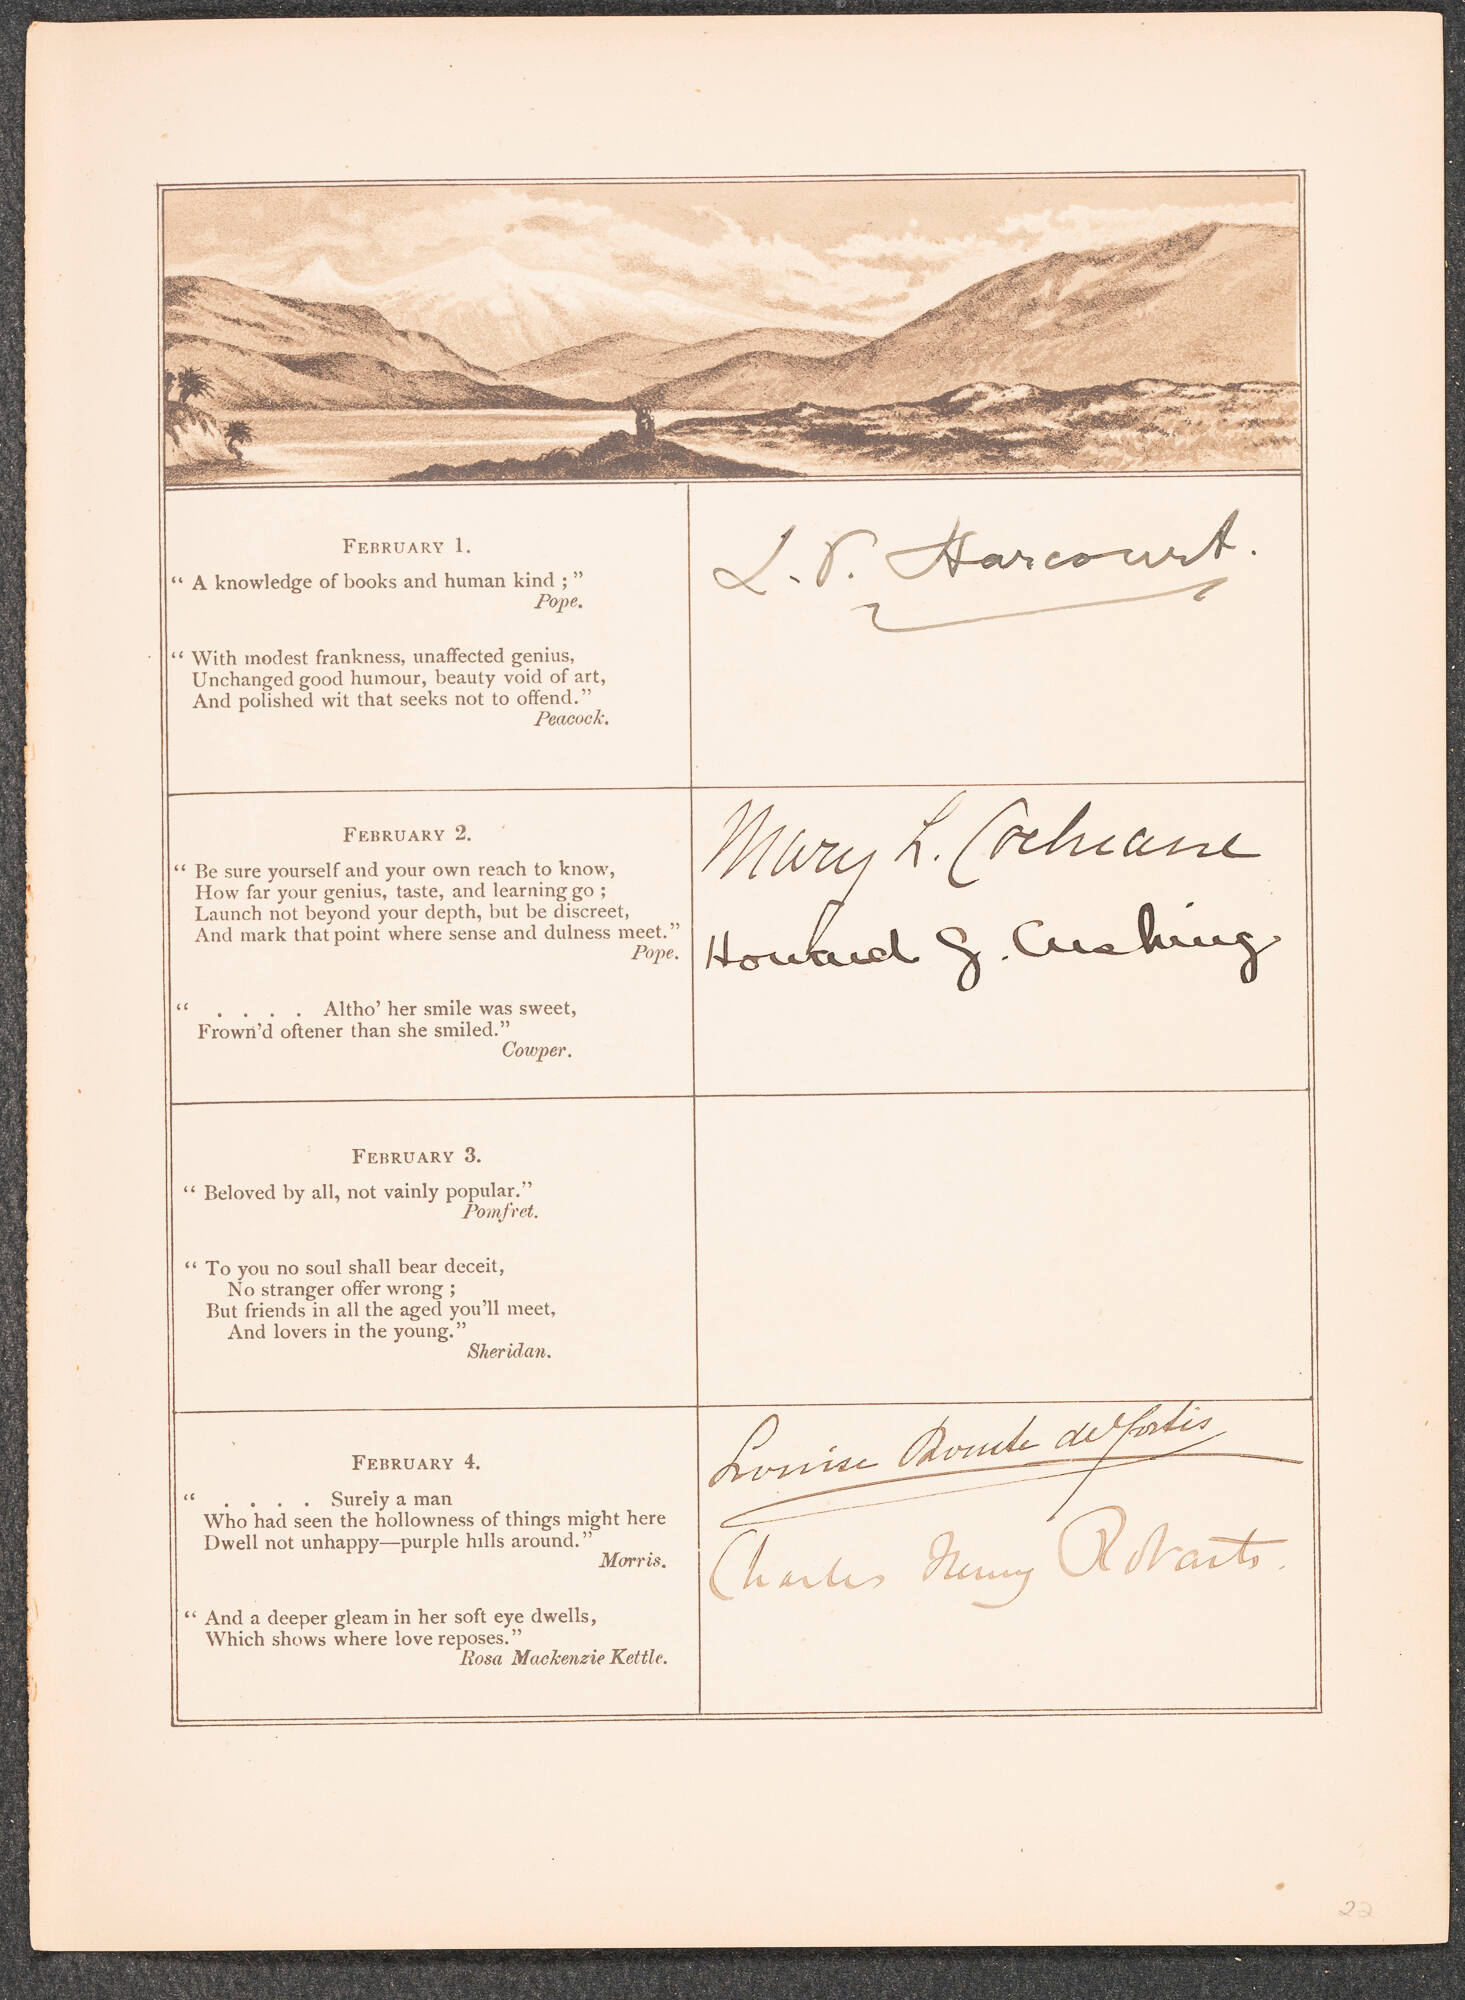 FEBRUARY 1.
“ A knowledge of books and human kind ; ”
Pope.
“ With modest frankness, unaffected genius,
Unchanged good humour, beauty void of art,
And polished wit that seeks not to offend.”
Peacock.
L. V. Harcourt.
FEBRUARY 2.
“ Be sure yourself and your own reach to know,
How far your genius, taste, and learning go ;
Launch not beyond your depth, but be discreet,
And mark that point where sense and dulness meet.”
Pope.
“ . . . . Altho’ her smile was sweet,
Frown’d oftener than she smiled.”
Cowper.
Mary L. Cochrane
Howard G. Cushing
FEBRUARY 3.
“ Beloved by all, not vainly popular.”
Pomfret.
“ To you no soul shall bear deceit,
No stranger offer wrong ;
But friends in all the aged you’ll meet,
And lovers in the young.”
Sheridan.
FEBRUARY 4.
“ . . . . Surely a man
Who had seen the hollowness of things might here
Dwell not unhappy—purple hills around.”
Morris.
“ And a deeper gleam in her soft eye dwells,
Which shows where love reposes.”
Rosa Mackenzie Kettle.
Louise
Charles Henry Robarts.
22